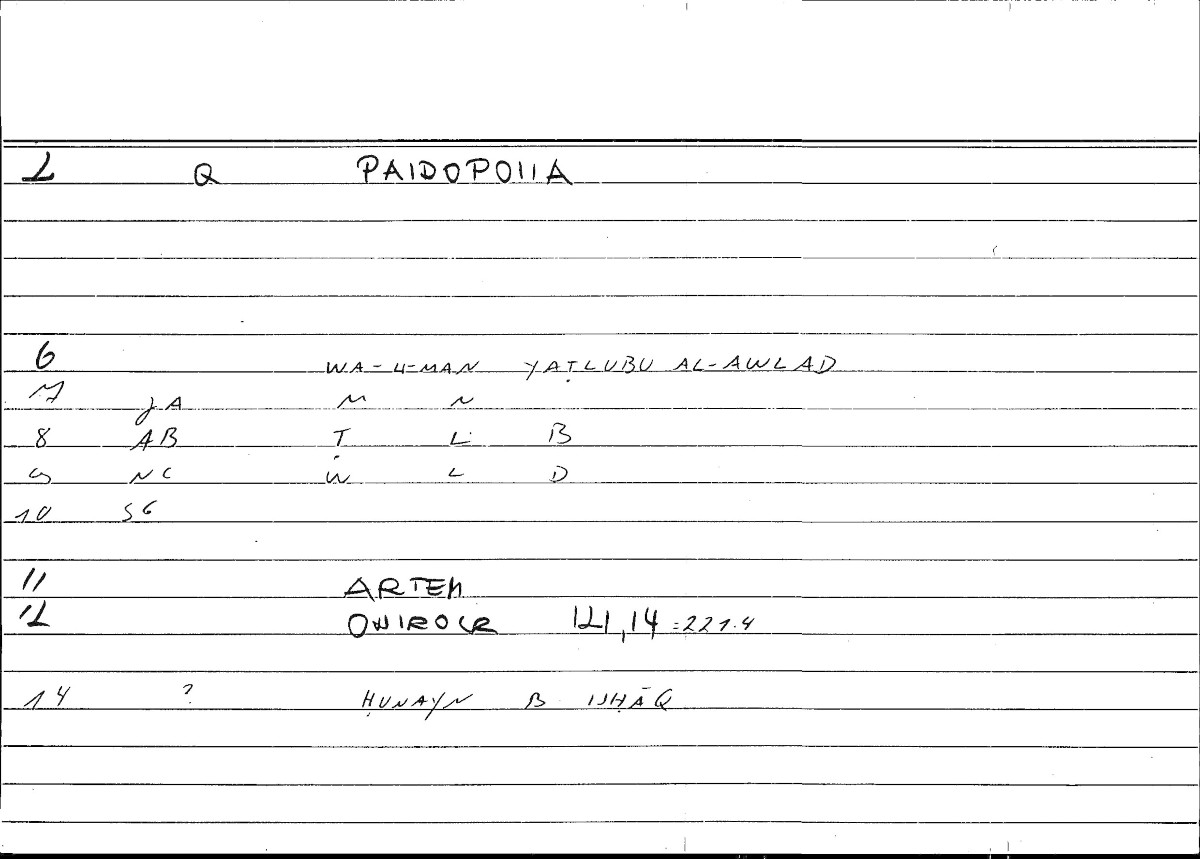 2 Q PAIDOPOIIA
6 WA-LI-MAN YAṬLUBU AL-AWLAD
7 JA M N
8 AB Ṭ L B
9 NC W L D
10 SG
11 ARTEM
12 ONIROCR 121,14 =221.4
14 ? ḤUNAYN B ISḤĀQ